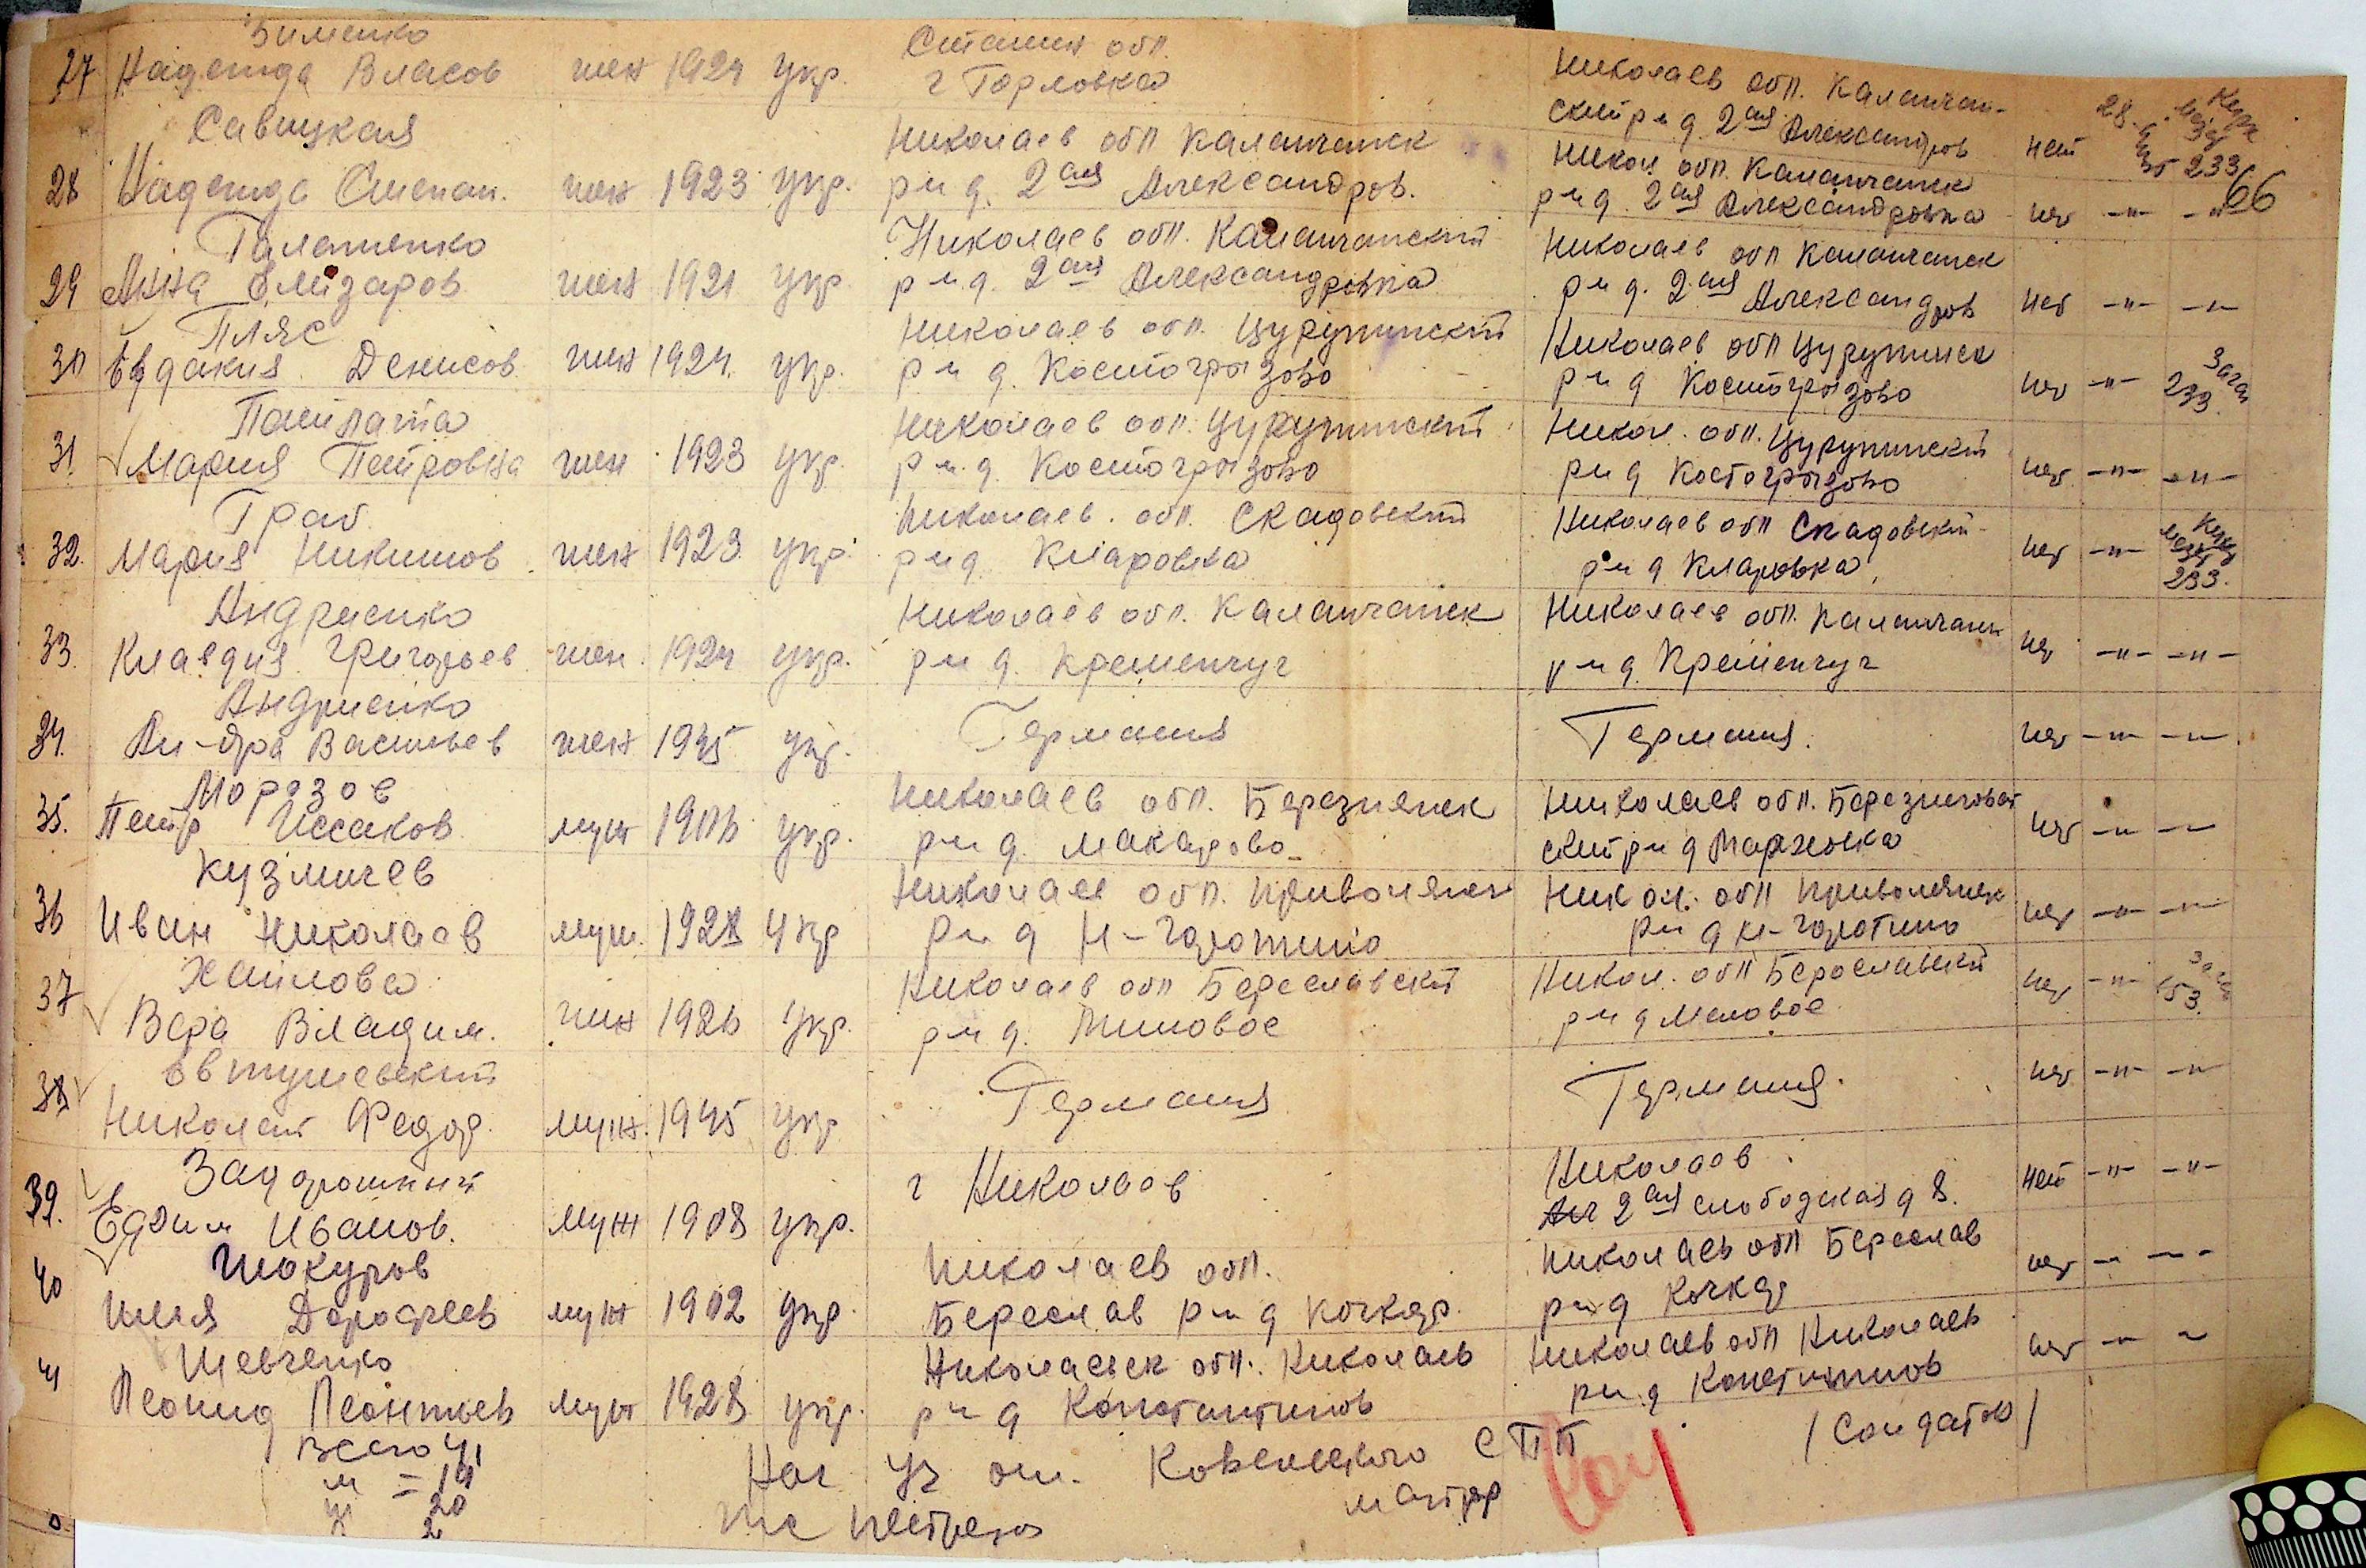 Зименко
27 Надежда Власов жен 1924 укр. Сталин обл. г Горловка Николаев обл. Каланчак-ский р н д. 2ая Александров нет 28.
Савицкая
28 Надежда Степан. жен 1923 укр. Николаев обл Каланчакск р н д. 2ая Александров. Никол обл. Каланчакск р н д. 2ая Александровка нет -"- -"- 66
Галатенко
29 Анна Елизаров жен 1921 укр Николаев обл. Каланчакский р н д. 2ая Александровка Николаев обл Каланчакск р н д. 2ая Александров нет -"- -"-
Пляс
30 Евдакия Денисов жен 1924. укр. Николаев обл. Цурупинский р н д. Костогрызово Николаев обл Цурупинск р н д Костогрызово нет -"- 233
31. Мария Петровна жен 1923 укр. Николаев обл. Цурупинский р н д. Костогрызово Никол. обл. Цурупинский р н д Костогрызово нет -"- -"-
Граб.
32. Мария Никитов жен 1923 укр. Николаев. обл. Скадовский р н д. Кларовка Николаев обл Скадовский р н д Кларовка нет -"- 233.
Андриенко
33. Клавдия Григорьев жен. 1924 укр. Николаев обл. Каланчакск р н д. Кременчуг Николаев обл. Каланчакск р н д Кременчуг нет -"- -"-
Андриенко
34. Васильев жен 1945 укр. Германия Германия. нет -"- -"-
Морозов
35. Петр Иссаков муж 1906 укр. Николаев обл. Березнянск р н д. Макарово Николаев обл. Березнеговат ский р н д нет -"- -"-
Кузмичев
36 Иван Николаев муж. 1928 укр Николаев обл. Привольнян р н д Н- Никол. обл Привольнянск р н д нет -"- -"-
Хаилова
37 Вера Владим. жен 1926 укр. Николаев обл Береславский р н д. Миловое Никол. обл Береславский р н д Меловое нет -"- 153.
Евтушевский
38 Николай Федор. муж. 1945 укр Германия Германия. нет -"- -"-
Задорожний
39. Ефим Иванов. муж 1908 укр. г Николаев Николаев 2ая слободская д 8. нет -"- -"-
Шокуров
40 Илья Дорофеев муж 1902 укр. Николаев обл. Береслав р н д Кочкар. Николаев обл Береслав р н д Кочкар нет - - -
Шевченко
41 Леонид Леонтьев муж 1928 укр. Николаевск обл. Николаев р н д Константинов Николаев обл Николаев р н д Константинов нет - -
Всего 41
м = 19
ж 20
2
Нач уч от. Ковельского СПП
майор
/Солдатов/